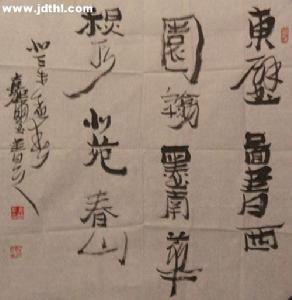 www.jdthl.com
東壁圖書西
園翰墨南華
秋水北苑春山